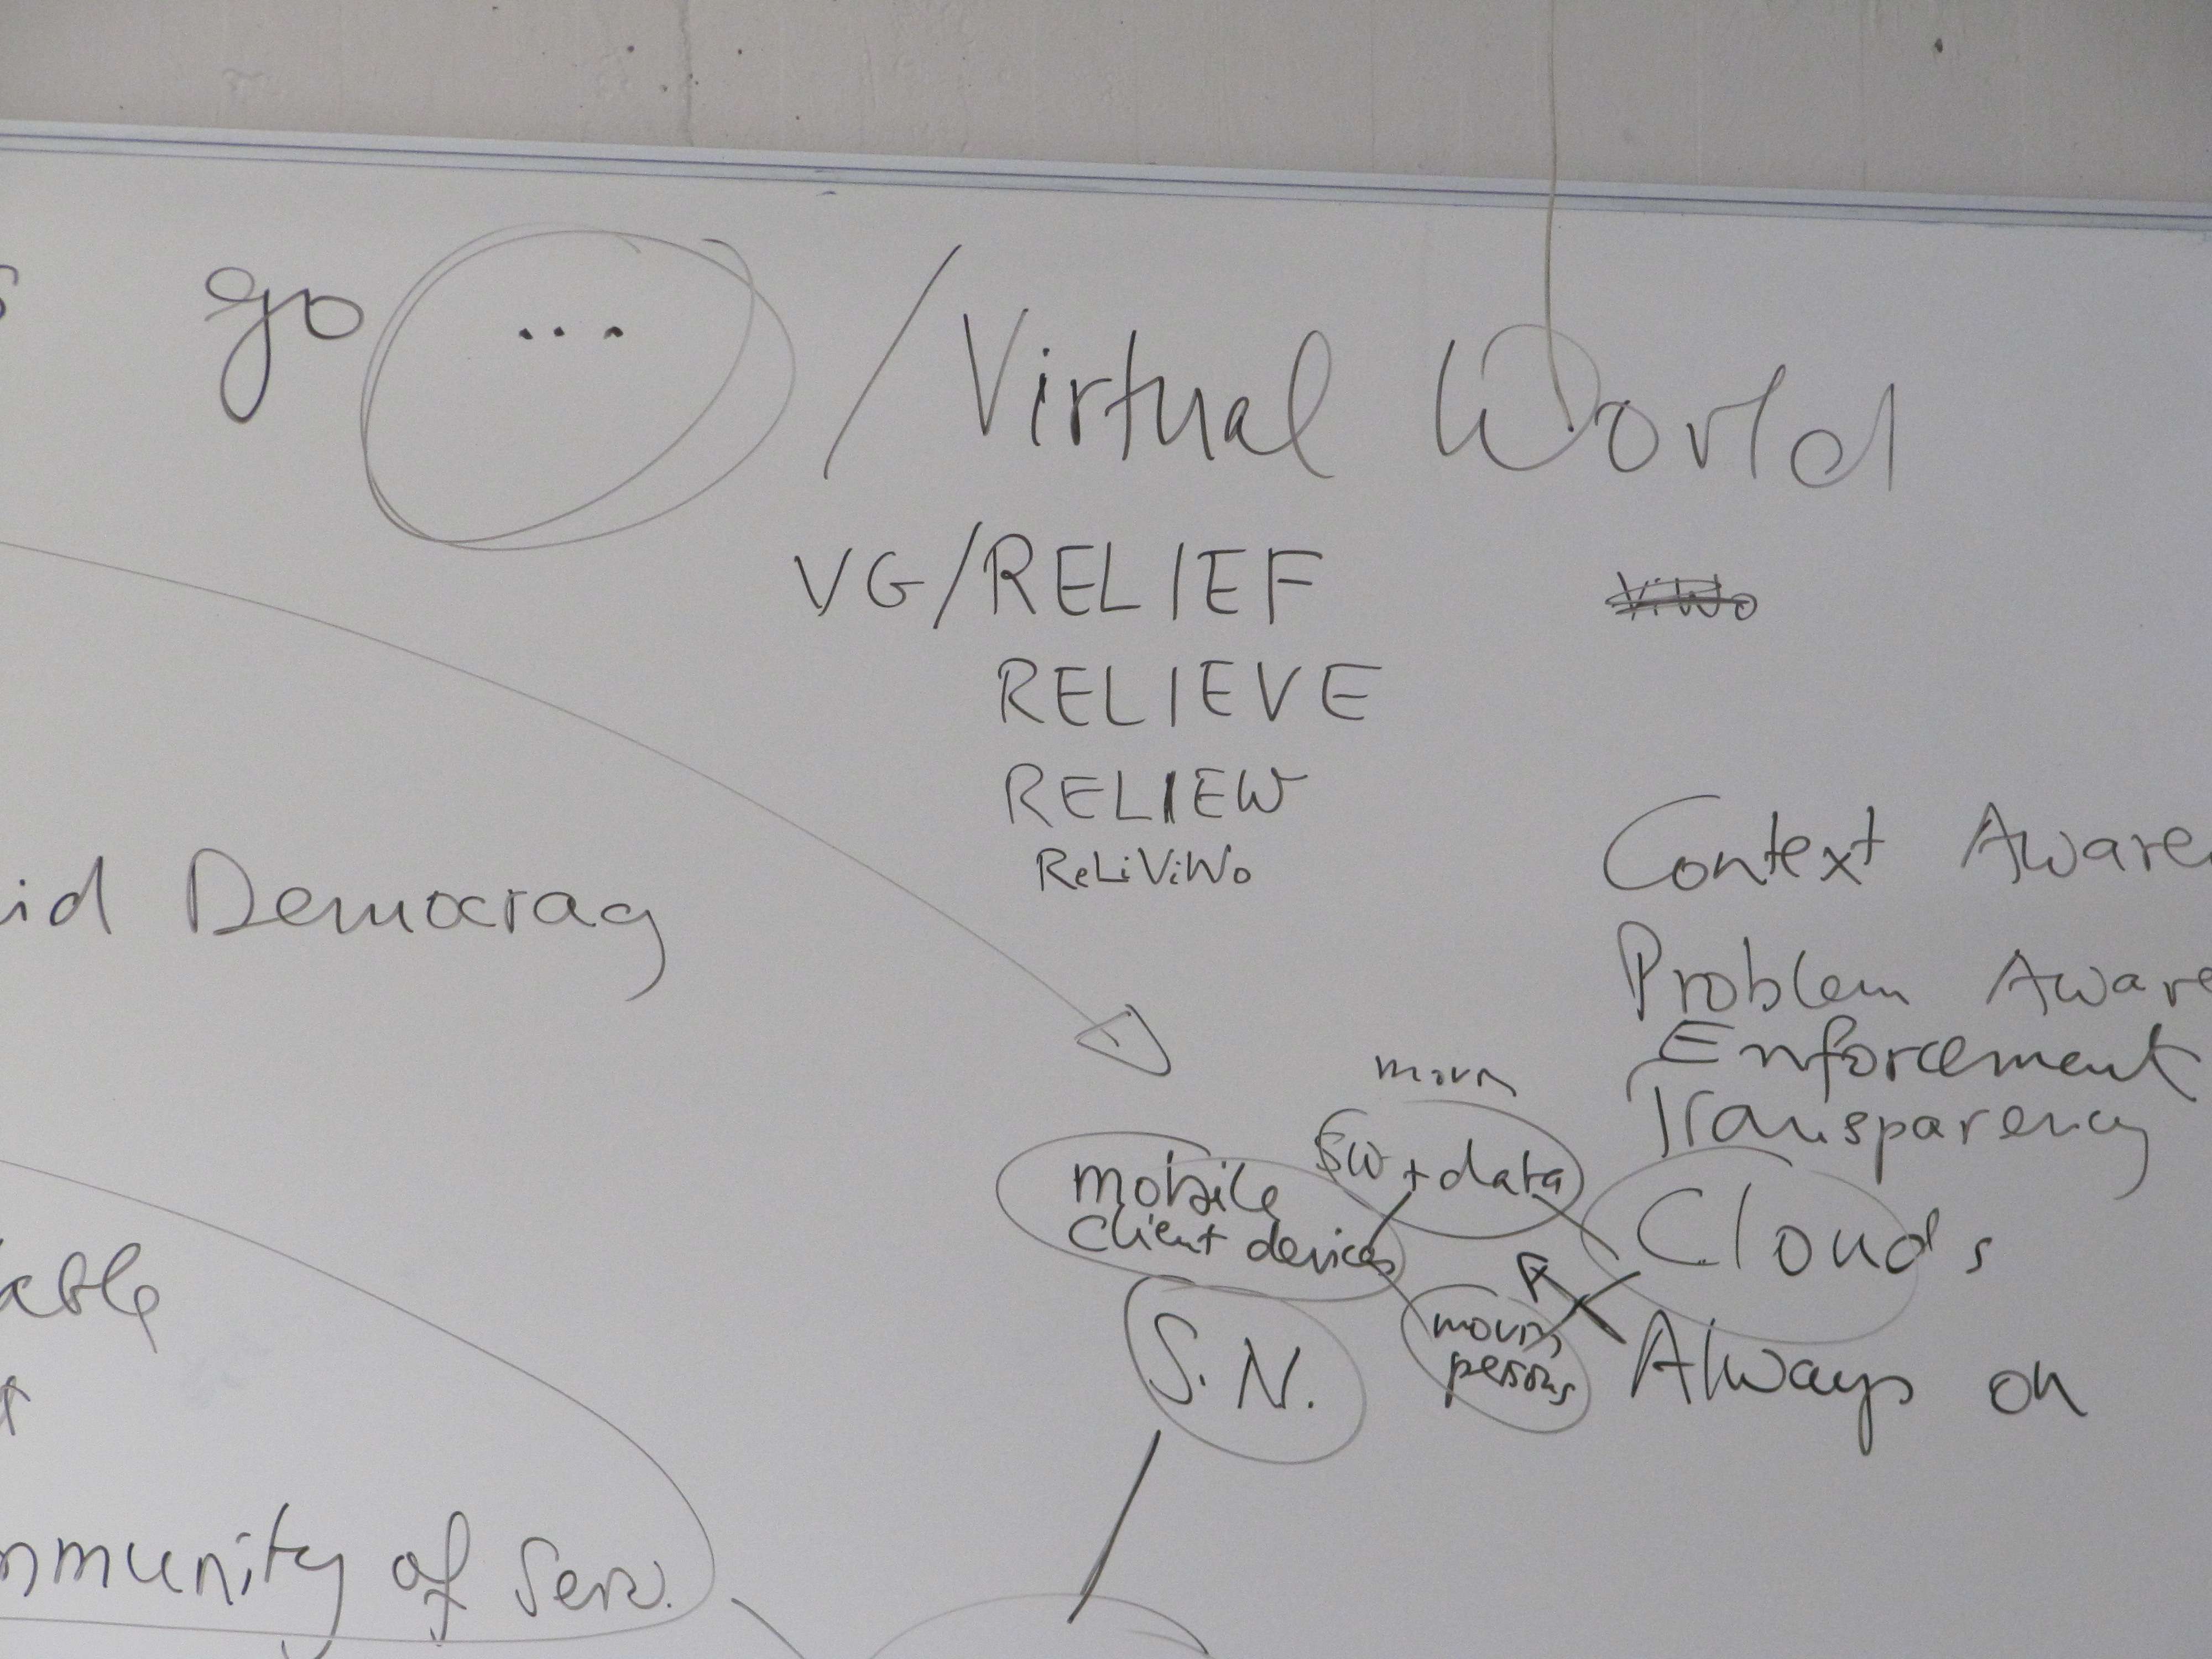 go ... / Virtual World
VG/RELIEF ViWo
RELIEVE
RELIEW
ReLiViWo
id Democracy
Context Aware
Problem Aware
Enforcement
Transparency
SW + data
mobile
Client devices
Clouds
moving
persons
S.N.
Always on
able
mmunity of Serv.